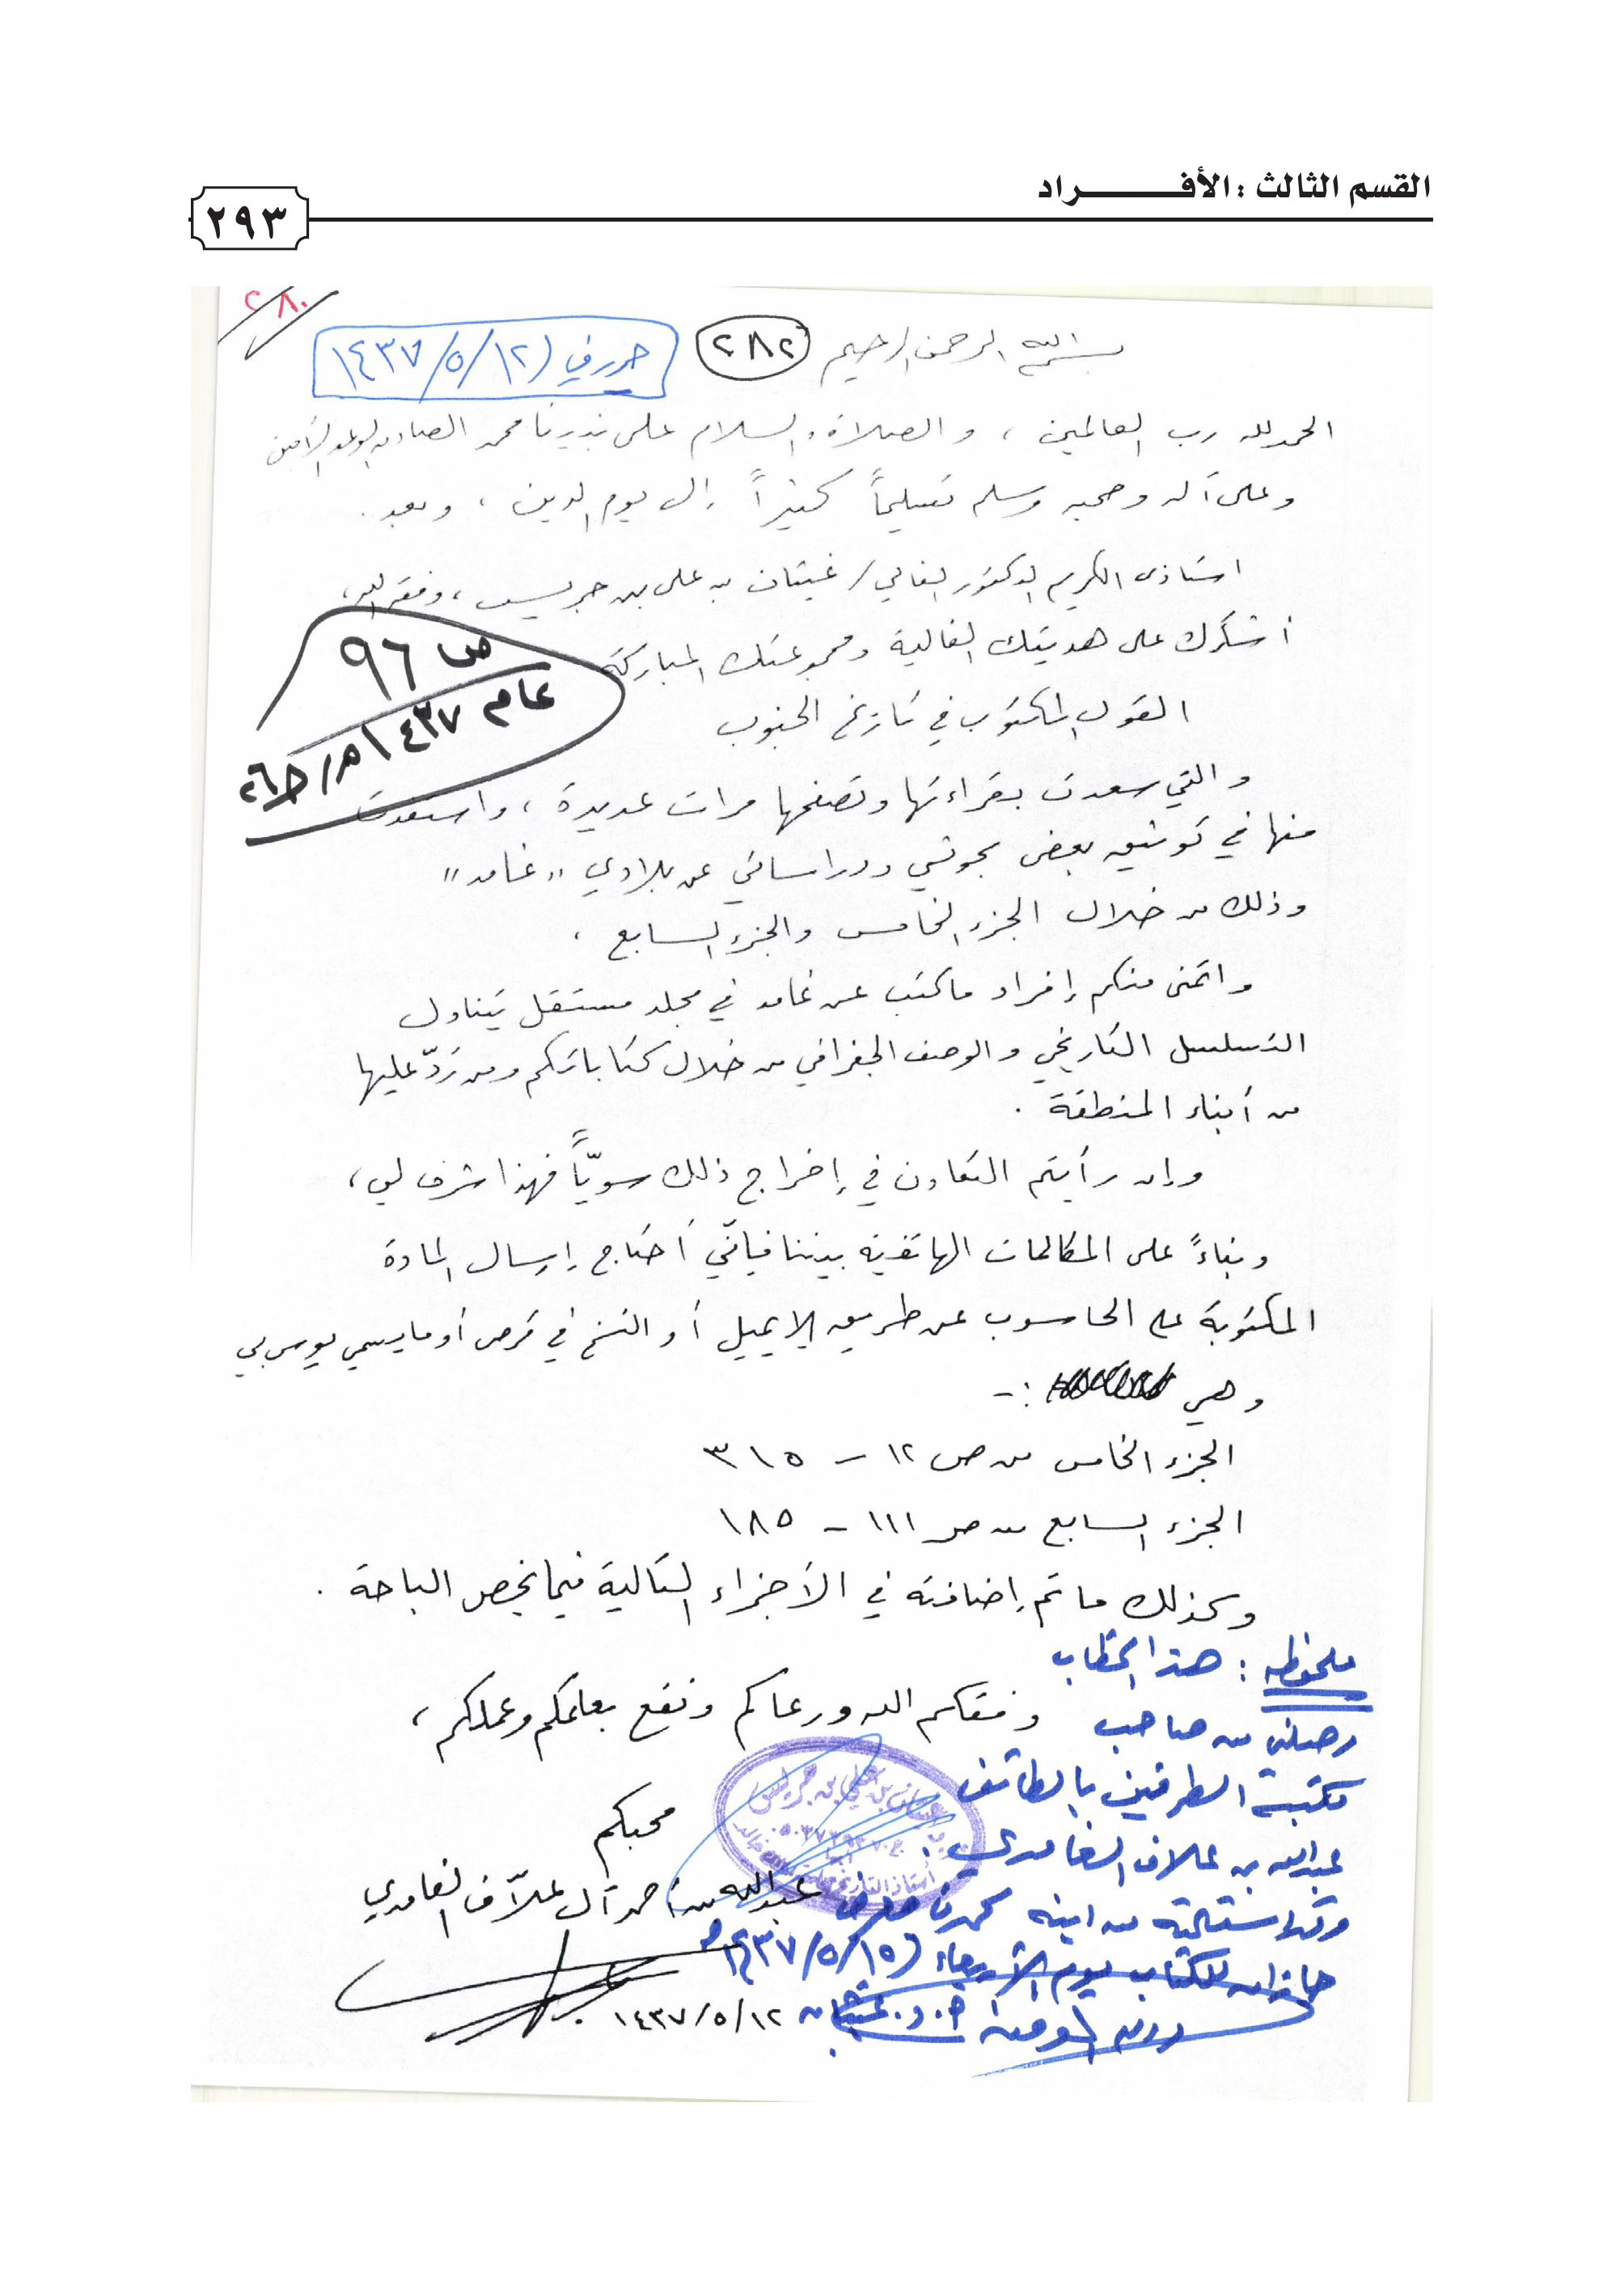 القسم الثالث : الأفـــــراد
٢٩٣
٢٨٠
بسم الله الرحمن الرحيم
٢٨٢
حرر في (١٢/٥/١٤٣٧
الحمد لله رب العالمين ، والصلاة والسلام على نبينا محمد الصادق الوعد الأمين
وعلى آله وصحبه وسلم تسليماً كثيراً إلى يوم الدين ، وبعد .
استاذي الكريم الدكتور الغالي / غيثان بن علي بن جريس ، وفقه الله ،
أشكرك على هديتك الغالية ومجموعتك المباركة
القول المكتوب في تاريخ الجنوب
ص ٩٦
عام ١٤٣٧هـ / ج٢٦
والتي سعدت بقراءتها وتصفحها مرات عديدة ، واستفدت
منها في توثيق بعض بحوثي ودراساتي عن بلادي "غامد"
وذلك من خلال الجزء الخامس والجزء السابع ،
واتمنى منكم إفراد ماكتب عن غامد في مجلد مستقل يتناول
التسلسل التاريخي والوصف الجغرافي من خلال كتاباتكم ومن ردّ عليها
من أبناء المنطقة .
وإن رأيتم التعاون في إخراج ذلك سويّاً فهذا شرف لي ،
وبناءً على المكالمات الهاتفية بيننا فإنّي أحتاج إرسال المادة
المكتوبة على الحاسوب عن طريق الإيميل أو النسخ في قرص أو مايسمى يو سي بي
وهي :-
الجزء الخامس من ص ١٢ – ٣١٥
الجزء السابع من ص ١١١ – ١٨٥
وكذلك ما تم إضافته في الأجزاء التالية فيما يخص الباحة .
وفقكم الله ورعاكم ونفع بعلمكم وعملكم ،
محبكم
عبدالله بن أحمد آل علاّف الغامدي
١٤٣٧/٥/١٢
ملحوظه : هذا الخطاب
وصلني من صاحب
مكتبة الطرفين بالطائف
عبدالله بن علاف الغامدي .
وقد استلمته من ابنه
يوم الأربعاء (١٥/٥/١٤٣٧هـ
أ.د. غيثان